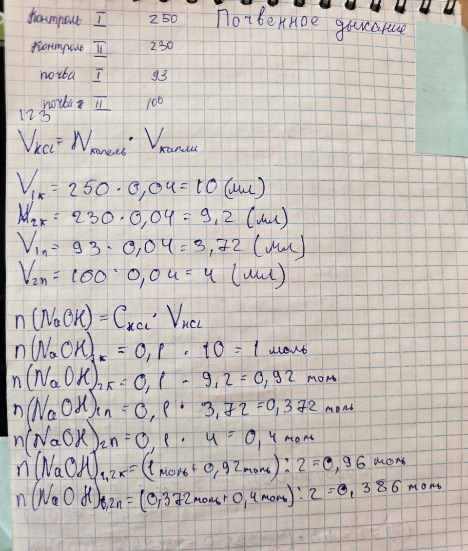 Контроль I 250 Почвенное дыхание
Контроль II 230
почва I 93
почва II 100
123
V HCl = N капель · V капли
V1к = 250 · 0,04 = 10 (мл)
V2к = 230 · 0,04 = 9,2 (мл)
V1п = 93 · 0,04 = 3,72 (мл)
V2п = 100 · 0,04 = 4 (мл)
n(NaOH) = C HCl · V HCl
n(NaOH)1к = 0,1 · 10 = 1 моль
n(NaOH)2к = 0,1 · 9,2 = 0,92 моль
n(NaOH)1п = 0,1 · 3,72 = 0,372 моль
n(NaOH)2п = 0,1 · 4 = 0,4 моль
n(NaOH)1,2к = (1 моль + 0,92 моль) : 2 = 0,96 моль
n(NaOH)1,2п = (0,372 моль + 0,4 моль) : 2 = 0,386 моль